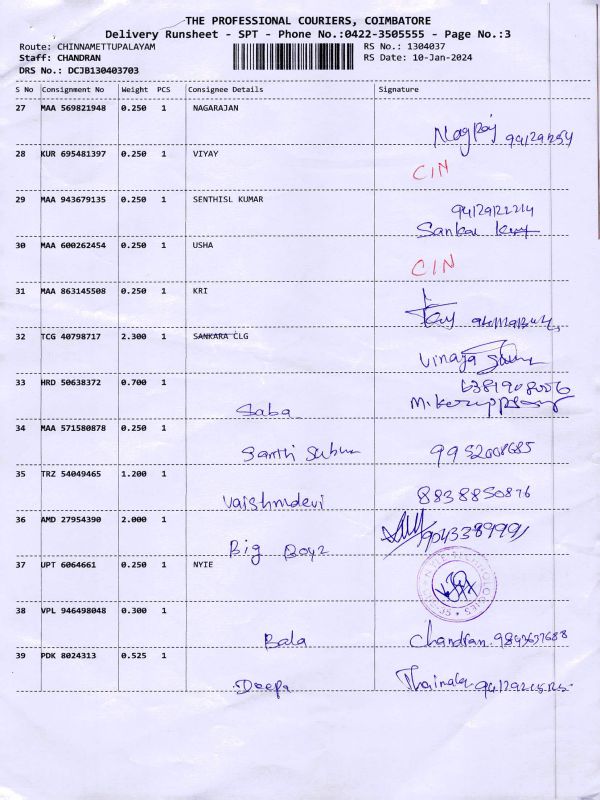 THE PROFESSIONAL COURIERS, COIMBATORE
Delivery Runsheet - SPT - Phone No.:0422-3505555 - Page No.:3
Route: CHINNAMETTUPALAYAM RS No.: 1304037
Staff: CHANDRAN RS Date: 10-Jan-2024
DRS No.: DCJB130403703
S No Consignment No Weight PCS Consignee Details Signature
27 MAA 569821948 0.250 1 NAGARAJAN
28 KUR 695481397 0.250 1 VIYAY
CIN
29 MAA 943679135 0.250 1 SENTHISL KUMAR
30 MAA 600262454 0.250 1 USHA
CIN
31 MAA 863145508 0.250 1 KRI
32 TCG 40798717 2.300 1 SANKARA CLG
33 HRD 50638372 0.700 1
Saba
34 MAA 571580878 0.250 1
Santhi
35 TRZ 54049465 1.200 1
Vaishnidevi 8838850876
36 AMD 27954390 2.000 1
Big Boyz
37 UPT 6064661 0.250 1 NYIE
38 VPL 946498048 0.300 1
Bala Chandran 9843637688
39 PDK 8024313 0.525 1
Deepa